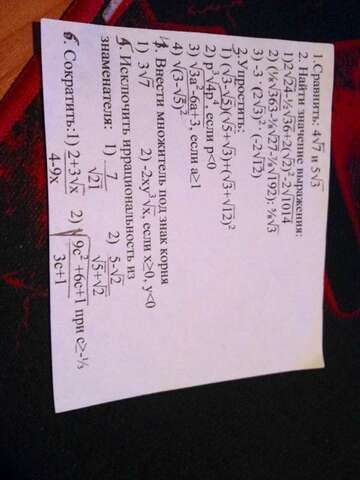 1.Сравнить: 4√7 и 5√3
2. Найти значение выражения:
1)2√24-½√36+2(√2)²-2√1014
2) (⅛√363-⅜√27-⅞√192): ⅝√3
3) -3 · (2√3)² · (-2√12)
3.Упростить:
1) (√3-√5)(√5+√3)+(√3+√12)²
2) p³√4p⁴, если p<0
3) √3a²-6a+3, если a≥1
4) √(3-√5)²
4. Внести множитель под знак корня
1) 3√7 2) -2xy³√x, если x≥0, y<0
5. Исключить иррациональность из
знаменателя: 1) 7/√21 2) (5-√2)/(√5+√2)
6. Сократить:1) (2+3√x)/(4-9x) 2) √((9c²+6c+1)/(3c+1)) при c≥-⅓